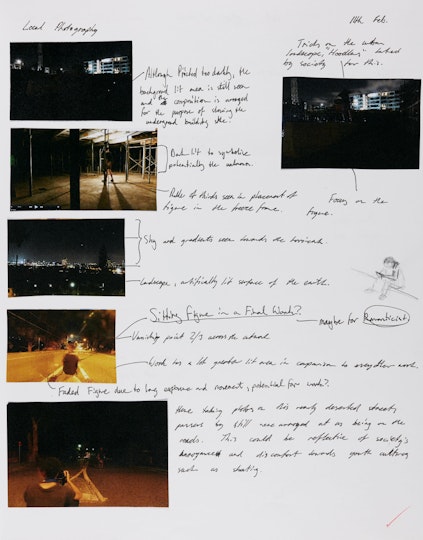 Local Photography
14th Feb.
Although Printed too darkly, the
background lit area is still seen
and the composition is arranged
for the purpose of showing the
underground building site.
Tricks on the urban
landscape, "Hoodlums"
by society for this.
Back lit to symbolise
potentially the unknown.
Rule of thirds seen in placement of
figure in the freeze frame.
Focus on the
figure.
Sky and gradients seen towards the horizon.
Landscape, artificially lit surface of the earth.
Sitting Figure in a Final Work?.
maybe for Romanticist
Vanishing point 2/3 across the
Work has a lot greater lit area in comparison to every other work.
Faded Figure due to long exposure and movement, potential for work?.
Here taking photos on this nearly deserted street,
persons by still were annoyed at us being on the
roads. This could be reflective of society's
annoyance and discomfort towards youth cultures
such as skating.